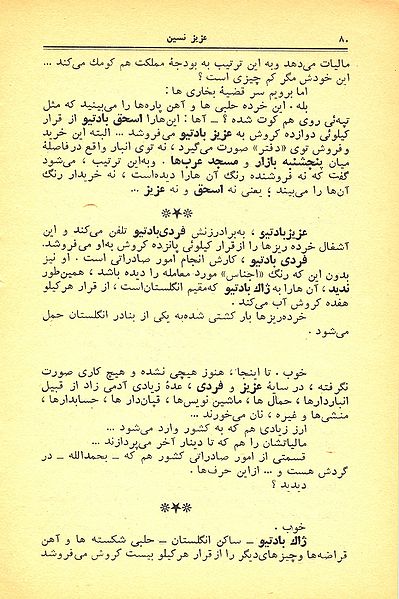 ۸۰
عزیز نسین
مالیات می‌دهد وبه این ترتیب به بودجهٔ مملکت هم کومك می‌کند ...
این خودش مگر کم چیزی است ؟
اما برویم سر قضیهٔ بخاری ها :
بله . این خرده حلبی ها و آهن پاره‌ها را می‌بینید که مثل
تپه‌ئی روی هم کوت شده ؟ ــ آها : این‌هارا اسحق بادتیو از قرار
کیلوئی دوازده کروش به عزیز بادتیو می‌فروشد ... البته این خرید
وفروش توی «دفتر» صورت می‌گیرد ، نه توی انبار واقع درفاصلهٔ
میان پنجشنبه بازار و مسجد عرب‌ها . وبه‌این ترتیب ، می‌شود
گفت که نه فروشنده رنگ آن هارا دیده‌است ، نه خریدار رنگ
آن‌ها را می‌بیند ؛ یعنی نه اسحق و نه عزیز ...
***
عزیزبادتیو ، به‌برادرزنش فردی‌بادتیو تلفن می‌کند و این
آشغال خرده ریزها را ازقرار کیلوئی پانزده کروش به‌او می‌فروشد.
فردی بادتیو ، کارش انجام امور صادراتی است . او نیز
بدون این که رنگ «اجناس» مورد معامله را دیده باشد ، همین‌طور
ندید ، آن هارا به ژاك بادتیو که‌مقیم انگلستان‌است ، از قرار هرکیلو
هفده کروش آب می‌کند .
خرده‌ریزها بار کشتی شده‌به یکی از بنادر انگلستان حمل
می‌شود .
خوب . تا اینجا ، هنوز هیچی نشده و هیچ کاری صورت
نگرفته ، در سایهٔ عزیز و فردی ، عدهٔ زیادی آدمی زاد از قبیل
انباردارها ، حمال ها ، ماشین نویس‌ها ، قپان‌دار ها ، حسابدارها ،
منشی‌ها و غیره ، نان می‌خورند ...
ارز زیادی هم که به کشور وارد می‌شود ...
مالیاتشان را هم که تا دینار آخر می‌پردازند ...
قسمتی از امور صادراتی کشور هم که ــ بحمدالله ــ در
گردش هست و ... ازاین حرف‌ها .
دیدید ؟
***
خوب .
ژاك بادتیو ــ ساکن انگلستان ــ حلبی شکسته ها و آهن
قراضه‌ها وچیزهای‌دیگر را ازقرار هرکیلو بیست کروش می‌فروشد